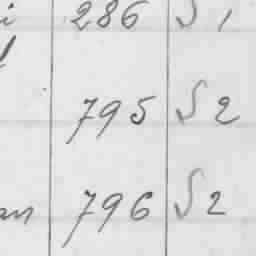 i 286 S 1
795 S 2
an 796 S 2